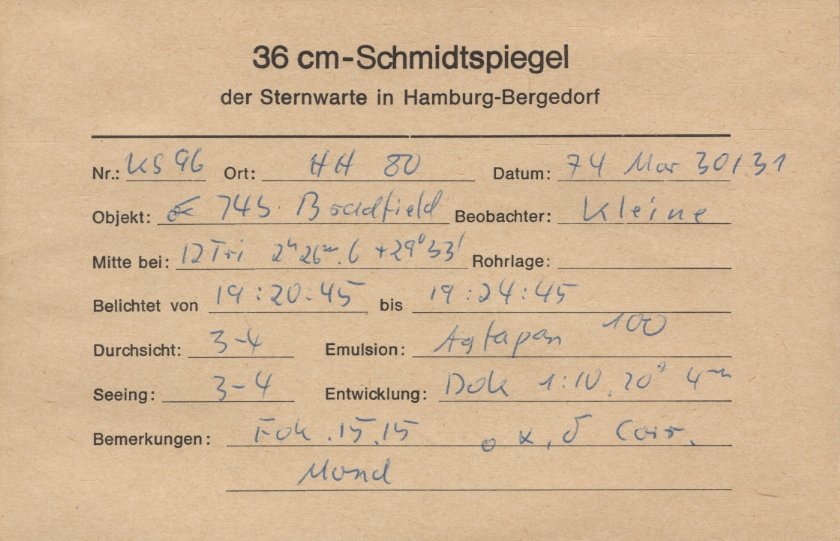 36 cm-Schmidtspiegel
der Sternwarte in Hamburg-Bergedorf
Nr.: KS 96 Ort: HH 80 Datum: 74 Mar 30/31
Objekt: 74b Bradfield Beobachter: Kleine
Mitte bei: 12 Tri 2ʰ26ᵐ.6 +29°33' Rohrlage:
Belichtet von 19:20:45 bis 19:24:45
Durchsicht: 3-4 Emulsion: Agfapan 100
Seeing: 3-4 Entwicklung: Dok 1:10, 20° 4ᵐ
Bemerkungen: Fok. 15,15 α, δ Corr.
Mond